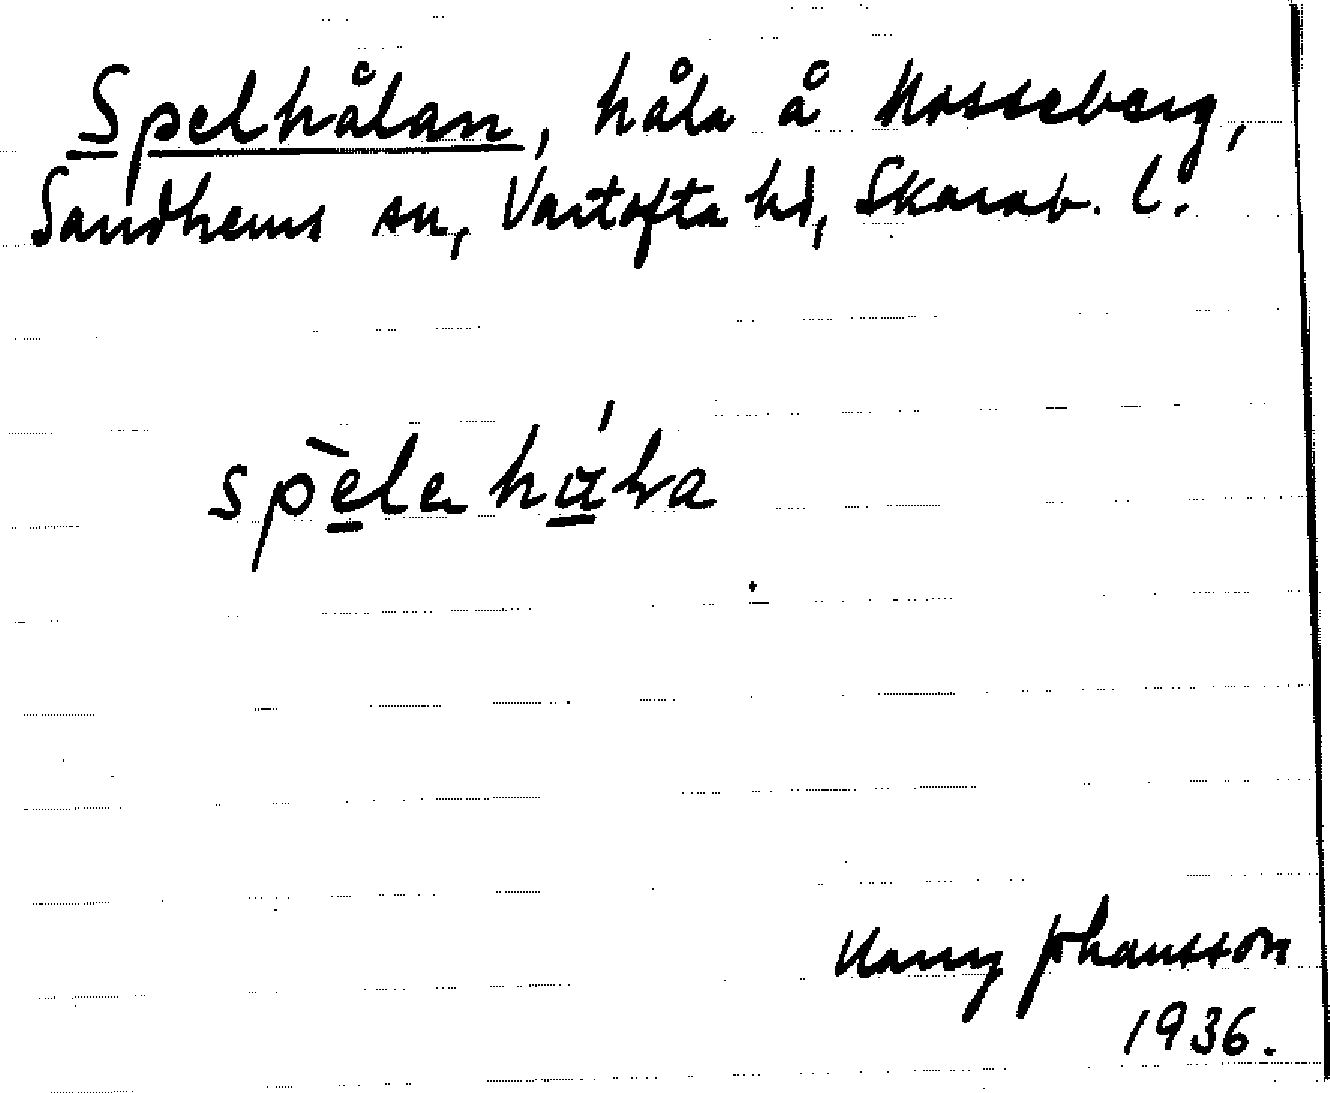 Spelhålan, håla å Mosseberg,
Sandhems sn, Vartofta hd, Skarab. l.
Harry Johansson
1936.